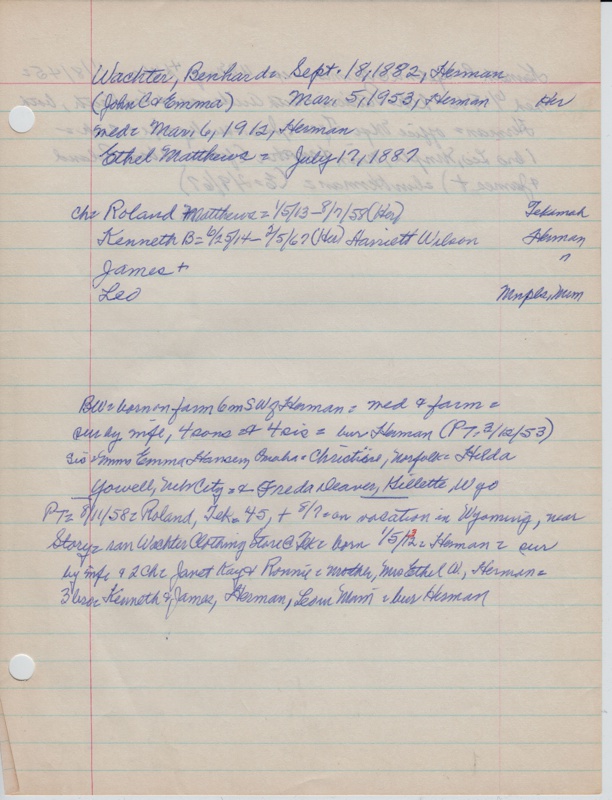 Wachter, Benhard = Sept. 18, 1882, Herman
(John C & Emma) Mar. 5, 1953, Herman Her
med = Mar. 6, 1912, Herman
Ethel Matthews = July 17, 1887
ch = Roland Matthews = 1/5/13 - 8/7/58 (Her) Tekamah
Kenneth B = 6/25/14 - 2/5/67 (Her) Harriett Wilson Herman
James + "
Leo Mnpls, Minn
BW = born on farm 6 m SW of Herman = med & farm =
sur by wife, 4 sons & 4 sis = bur Herman (PT, 3/12/53)
Sis = Mmes Emma Hansen, Omaha = Christine, Norfolk = Hilda
Yowell, Neb City = & Freda Weaver, Gillette Wyo
PT = 8/11/58 = Roland, Tek = 45, + 8/7 = on vacation in Wyoming, near
Story = ran Wachter Clothing Store @ Tek = born 1/5/13 = Herman = sur
by wife & 2 ch = Janet Kay & Ronnie = mother, Mrs Ethel W., Herman =
3 bros = Kenneth & James, Herman, Leo in Minn = bur Herman